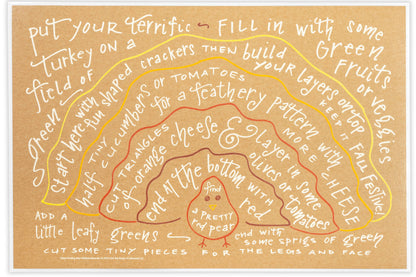 put your terrific turkey on a field of green
FILL IN with some Green FRUITS or veggies
Start here with fun shaped crackers THEN build YOUR LAYERS on top KEEP IT FALL FESTIVE
half TINY CUCUMBERS or TOMATOES for a feathery pattern with MORE CHEESE
CUT TRIANGLES of orange cheese & layer in some olives or some tomatoes
end AT the bottom WITH red
find
a PRETTY
red pear
ADD A
little leafy greens
end with
some sprigs of green
CUT SOME TINY PIECES FOR THE LEGS AND FACE